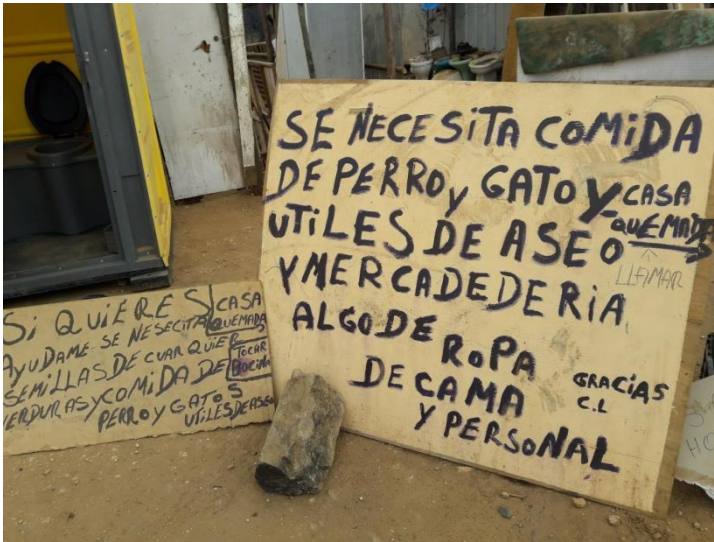 SE NECESITA COMIDA
DE PERRO y GATO Y CASA
QUEMADA
UTILES DE ASEO
LLAMAR
Y MERCADEDERIA
ALGO DE ROPA
DE CAMA
Y PERSONAL
GRACIAS
C.L
Si QUIERES CASA
QUEMADA
AYUDAME SE NESECITA
SEMILLAS DE CUARQUIER TOCAR
VERDURAS Y COMIDA DE BOCINA
PERRO y GATOS
UTILES DE ASEO